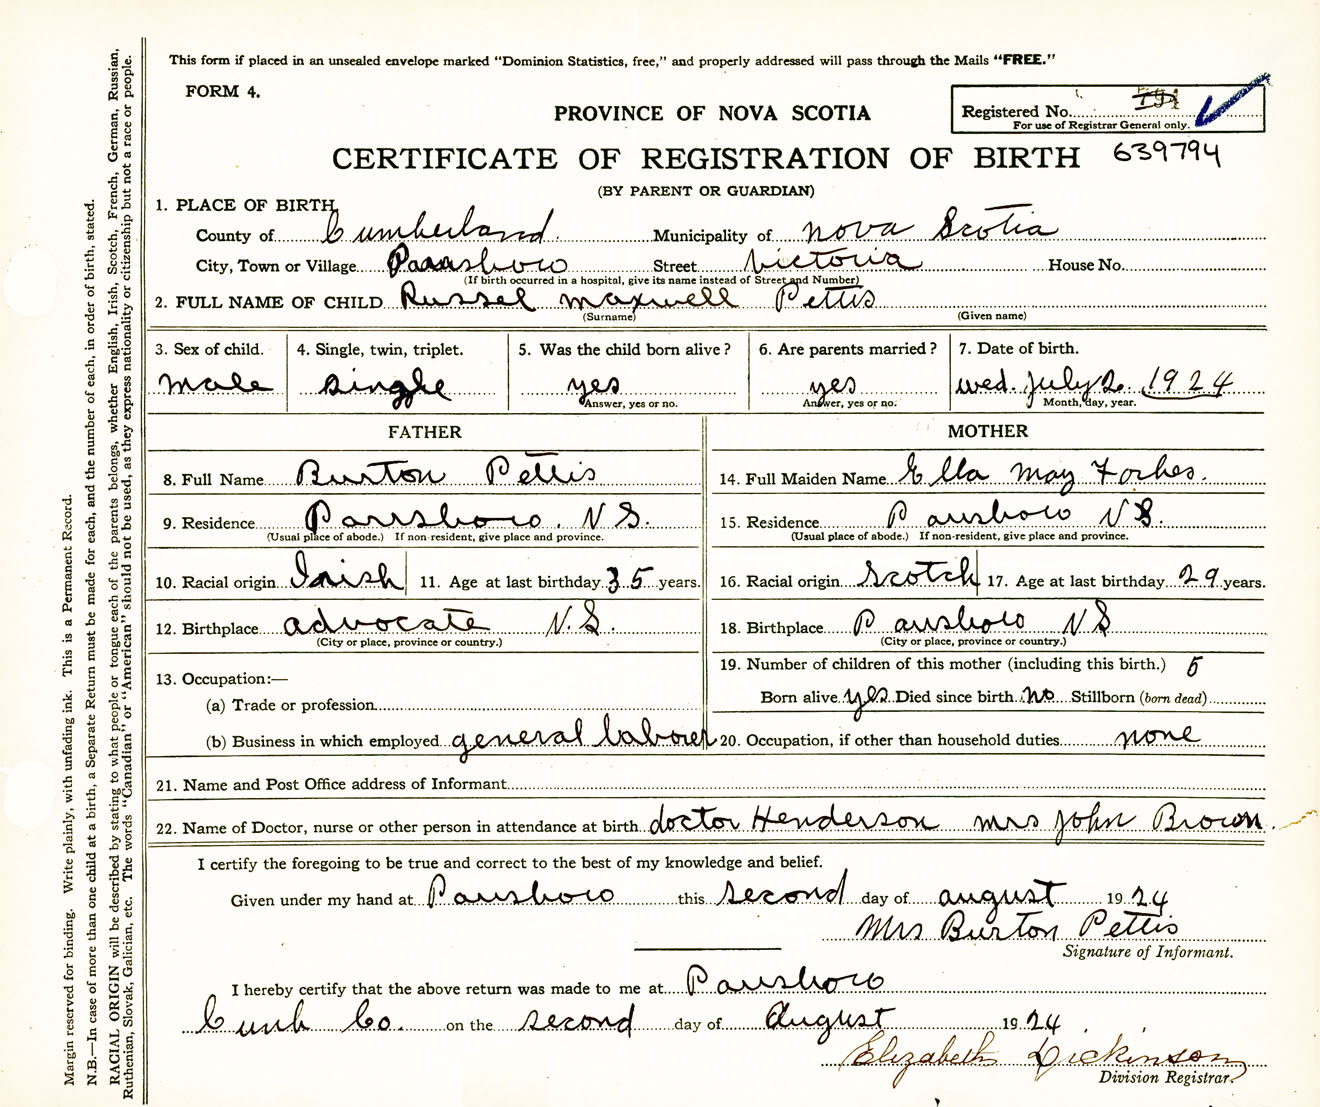 This form if placed in an unsealed envelope marked “Dominion Statistics, free,” and properly addressed will pass through the Mails “FREE.”
FORM 4.
PROVINCE OF NOVA SCOTIA
Registered No. 794
For use of Registrar General only.
CERTIFICATE OF REGISTRATION OF BIRTH 639794
(BY PARENT OR GUARDIAN)
1. PLACE OF BIRTH
County of Cumberland Municipality of nova Scotia
City, Town or Village Parrsboro Street Victoria House No.
(If birth occurred in a hospital, give its name instead of Street and Number)
2. FULL NAME OF CHILD Russel maxwell Pettis
(Surname) (Given name)
3. Sex of child. 4. Single, twin, triplet. 5. Was the child born alive? 6. Are parents married? 7. Date of birth.
male single yes yes wed. July 2. 1924
Answer, yes or no. Answer, yes or no. Month, day, year.
FATHER MOTHER
8. Full Name Burton Pettis 14. Full Maiden Name Ella may Forbes.
9. Residence Parrsboro. N S. 15. Residence Parrsboro N S.
(Usual place of abode.) If non-resident, give place and province. (Usual place of abode.) If non-resident, give place and province.
10. Racial origin Irish 11. Age at last birthday 35 years. 16. Racial origin Scotch 17. Age at last birthday 29 years.
12. Birthplace advocate N.S. 18. Birthplace Parrsboro N S
(City or place, province or country.) (City or place, province or country.)
13. Occupation:— 19. Number of children of this mother (including this birth.) 5
(a) Trade or profession Born alive yes Died since birth no Stillborn (born dead)
(b) Business in which employed general laborer 20. Occupation, if other than household duties none
21. Name and Post Office address of Informant
22. Name of Doctor, nurse or other person in attendance at birth doctor Henderson mrs John Brown.
I certify the foregoing to be true and correct to the best of my knowledge and belief.
Given under my hand at Parrsboro this second day of august 1924
Mrs Burton Pettis
Signature of Informant.
I hereby certify that the above return was made to me at Parrsboro
Cumb Co. on the second day of August 1924.
Elizabeth Dickinson
Division Registrar.
Margin reserved for binding. Write plainly, with unfading ink. This is a Permanent Record.
N.B.—In case of more than one child at a birth, a Separate Return must be made for each, and the number of each, in order of birth, stated.
RACIAL ORIGIN will be described by stating to what people or tongue each of the parents belongs, whether English, Irish, Scotch, French, German, Russian,
Ruthenian, Slovak, Galician, etc. The words “Canadian” or “American” should not be used, as they express nationality or citizenship but not a race or people.